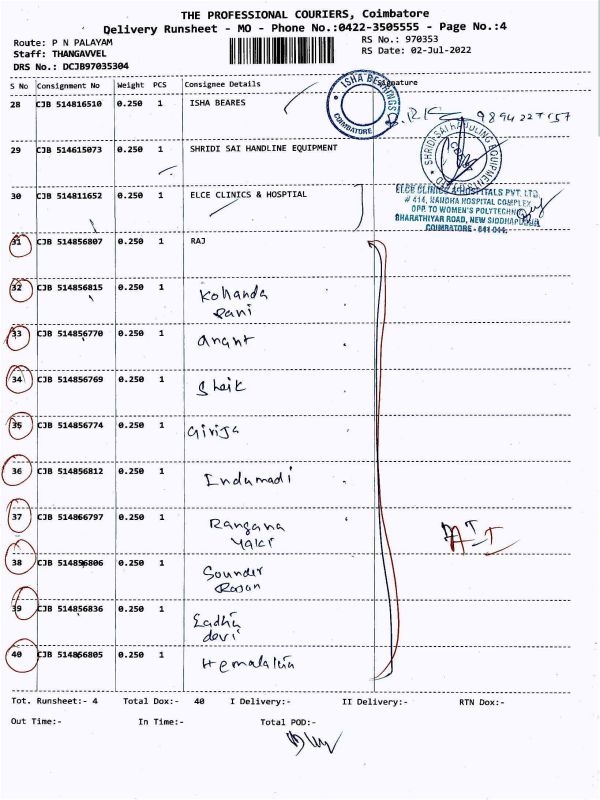 THE PROFESSIONAL COURIERS, Coimbatore
Delivery Runsheet - MO - Phone No.:0422-3505555 - Page No.:4
Route: P N PALAYAM
RS No.: 970353
Staff: THANGAVVEL
RS Date: 02-Jul-2022
DRS No.: DCJB97035304
S No Consignment No Weight PCS Consignee Details Signature
28 CJB 514816510 0.250 1 ISHA BEARES
ISHA BEARINGS
COIMBATORE
29 CJB 514615073 0.250 1 SHRIDI SAI HANDLINE EQUIPMENT
SHRIDI SAI HAULING EQUIPMENTS
30 CJB 514811652 0.250 1 ELCE CLINICS & HOSPTIAL
ELCE CLINICS & HOSPITALS PVT. LTD.
# 414, NANDHA HOSPITAL COMPLEX
OPP. TO WOMEN'S POLYTECHNIC
BHARATHIYAR ROAD, NEW SIDDHAPUDUR
COIMBATORE - 641 044.
31 CJB 514856807 0.250 1 RAJ
32 CJB 514856815 0.250 1 Kohanda
Rani
33 CJB 514856770 0.250 1 Anant
34 CJB 514856769 0.250 1 Sheik
35 CJB 514856774 0.250 1 Girija
36 CJB 514856812 0.250 1 Indumadi
37 CJB 514866797 0.250 1 Rangana
yaki
38 CJB 514896806 0.250 1 Sounder
Rajan
39 CJB 514856836 0.250 1 Radha
devi
40 CJB 514866805 0.250 1 Hemalatha
Tot. Runsheet:- 4 Total Dox:- 40 I Delivery:- II Delivery:- RTN Dox:-
Out Time:- In Time:- Total POD:-